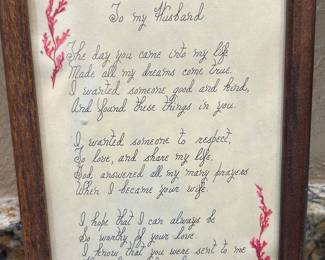 To my Husband
The day you came into my life
Made all my dreams come true.
I wanted someone good and kind,
And found these things in you.
I wanted someone to respect,
To love, and share my life,
God answered all my many prayers
When I became your wife.
I hope that I can always be
So worthy of your love
I know that you were sent to me